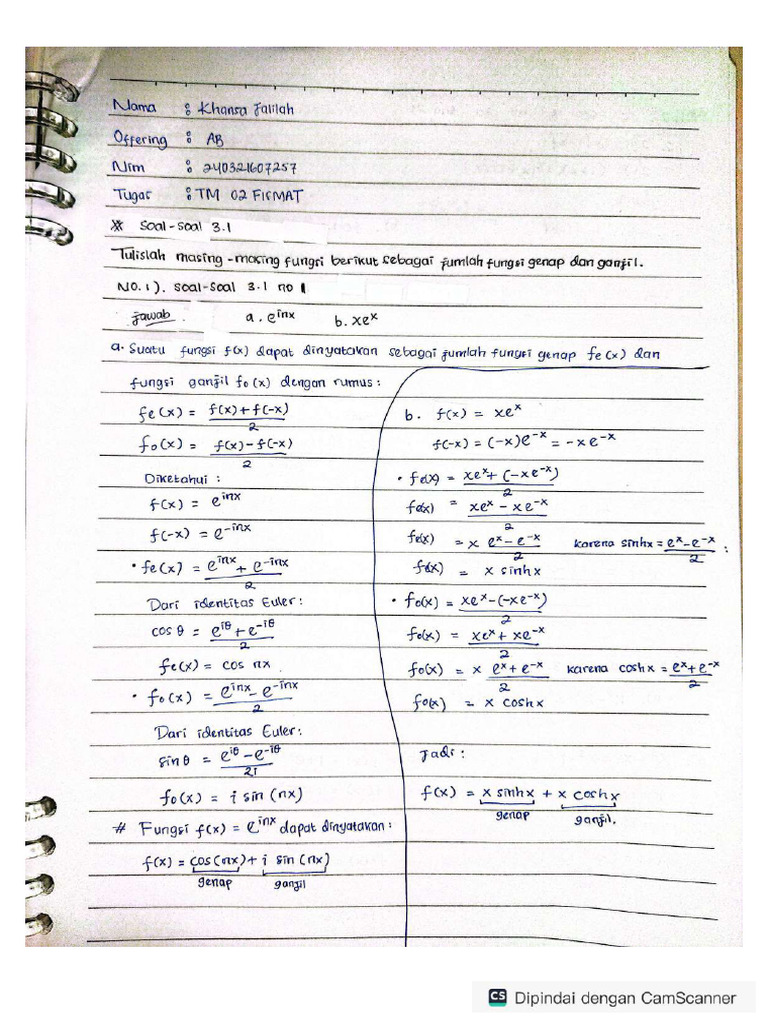 Nama : Khansa Jalilah
Offering : AB
Nim : 240321607257
Tugas : TM 02 FISMAT
* Soal-soal 3.1
Tulislah masing-masing fungsi berikut sebagai jumlah fungsi genap dan ganjil.
NO.1). Soal-soal 3.1 no 1
Jawab a. e^inx b. xe^x
a. Suatu fungsi f(x) dapat dinyatakan sebagai jumlah fungsi genap fe(x) dan
fungsi ganjil fo(x) dengan rumus:
fe(x) = (f(x)+f(-x))/2
fo(x) = (f(x)-f(-x))/2
Diketahui :
f(x) = e^inx
f(-x) = e^-inx
• fe(x) = (e^inx + e^-inx)/2
Dari identitas Euler:
cos θ = (e^iθ + e^-iθ)/2
fe(x) = cos nx
• fo(x) = (e^inx - e^-inx)/2
Dari identitas Euler:
sin θ = (e^iθ - e^-iθ)/2i
fo(x) = i sin (nx)
# Fungsi f(x) = e^inx dapat dinyatakan:
f(x) = cos(nx) + i sin (nx)
genap ganjil
b. f(x) = xe^x
f(-x) = (-x)e^-x = -xe^-x
• fe(x) = (xe^x + (-xe^-x))/2
fe(x) = (xe^x - xe^-x)/2
fe(x) = x (e^x - e^-x)/2 karena sinhx = (e^x - e^-x)/2 :
fe(x) = x sinhx
• fo(x) = (xe^x - (-xe^-x))/2
fo(x) = (xe^x + xe^-x)/2
fo(x) = x (e^x + e^-x)/2 karena coshx = (e^x + e^-x)/2
fo(x) = x coshx
Jadi :
f(x) = x sinhx + x coshx
genap ganjil.
CS Dipindai dengan CamScanner